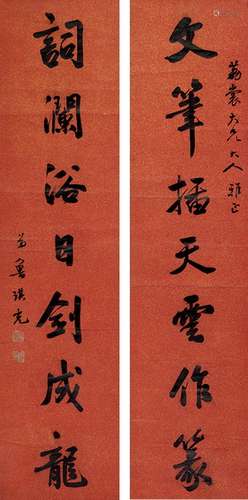 文筆插天雲作篆
大兄大人雅正
詞瀾浴日劍成龍
弟魯琪光